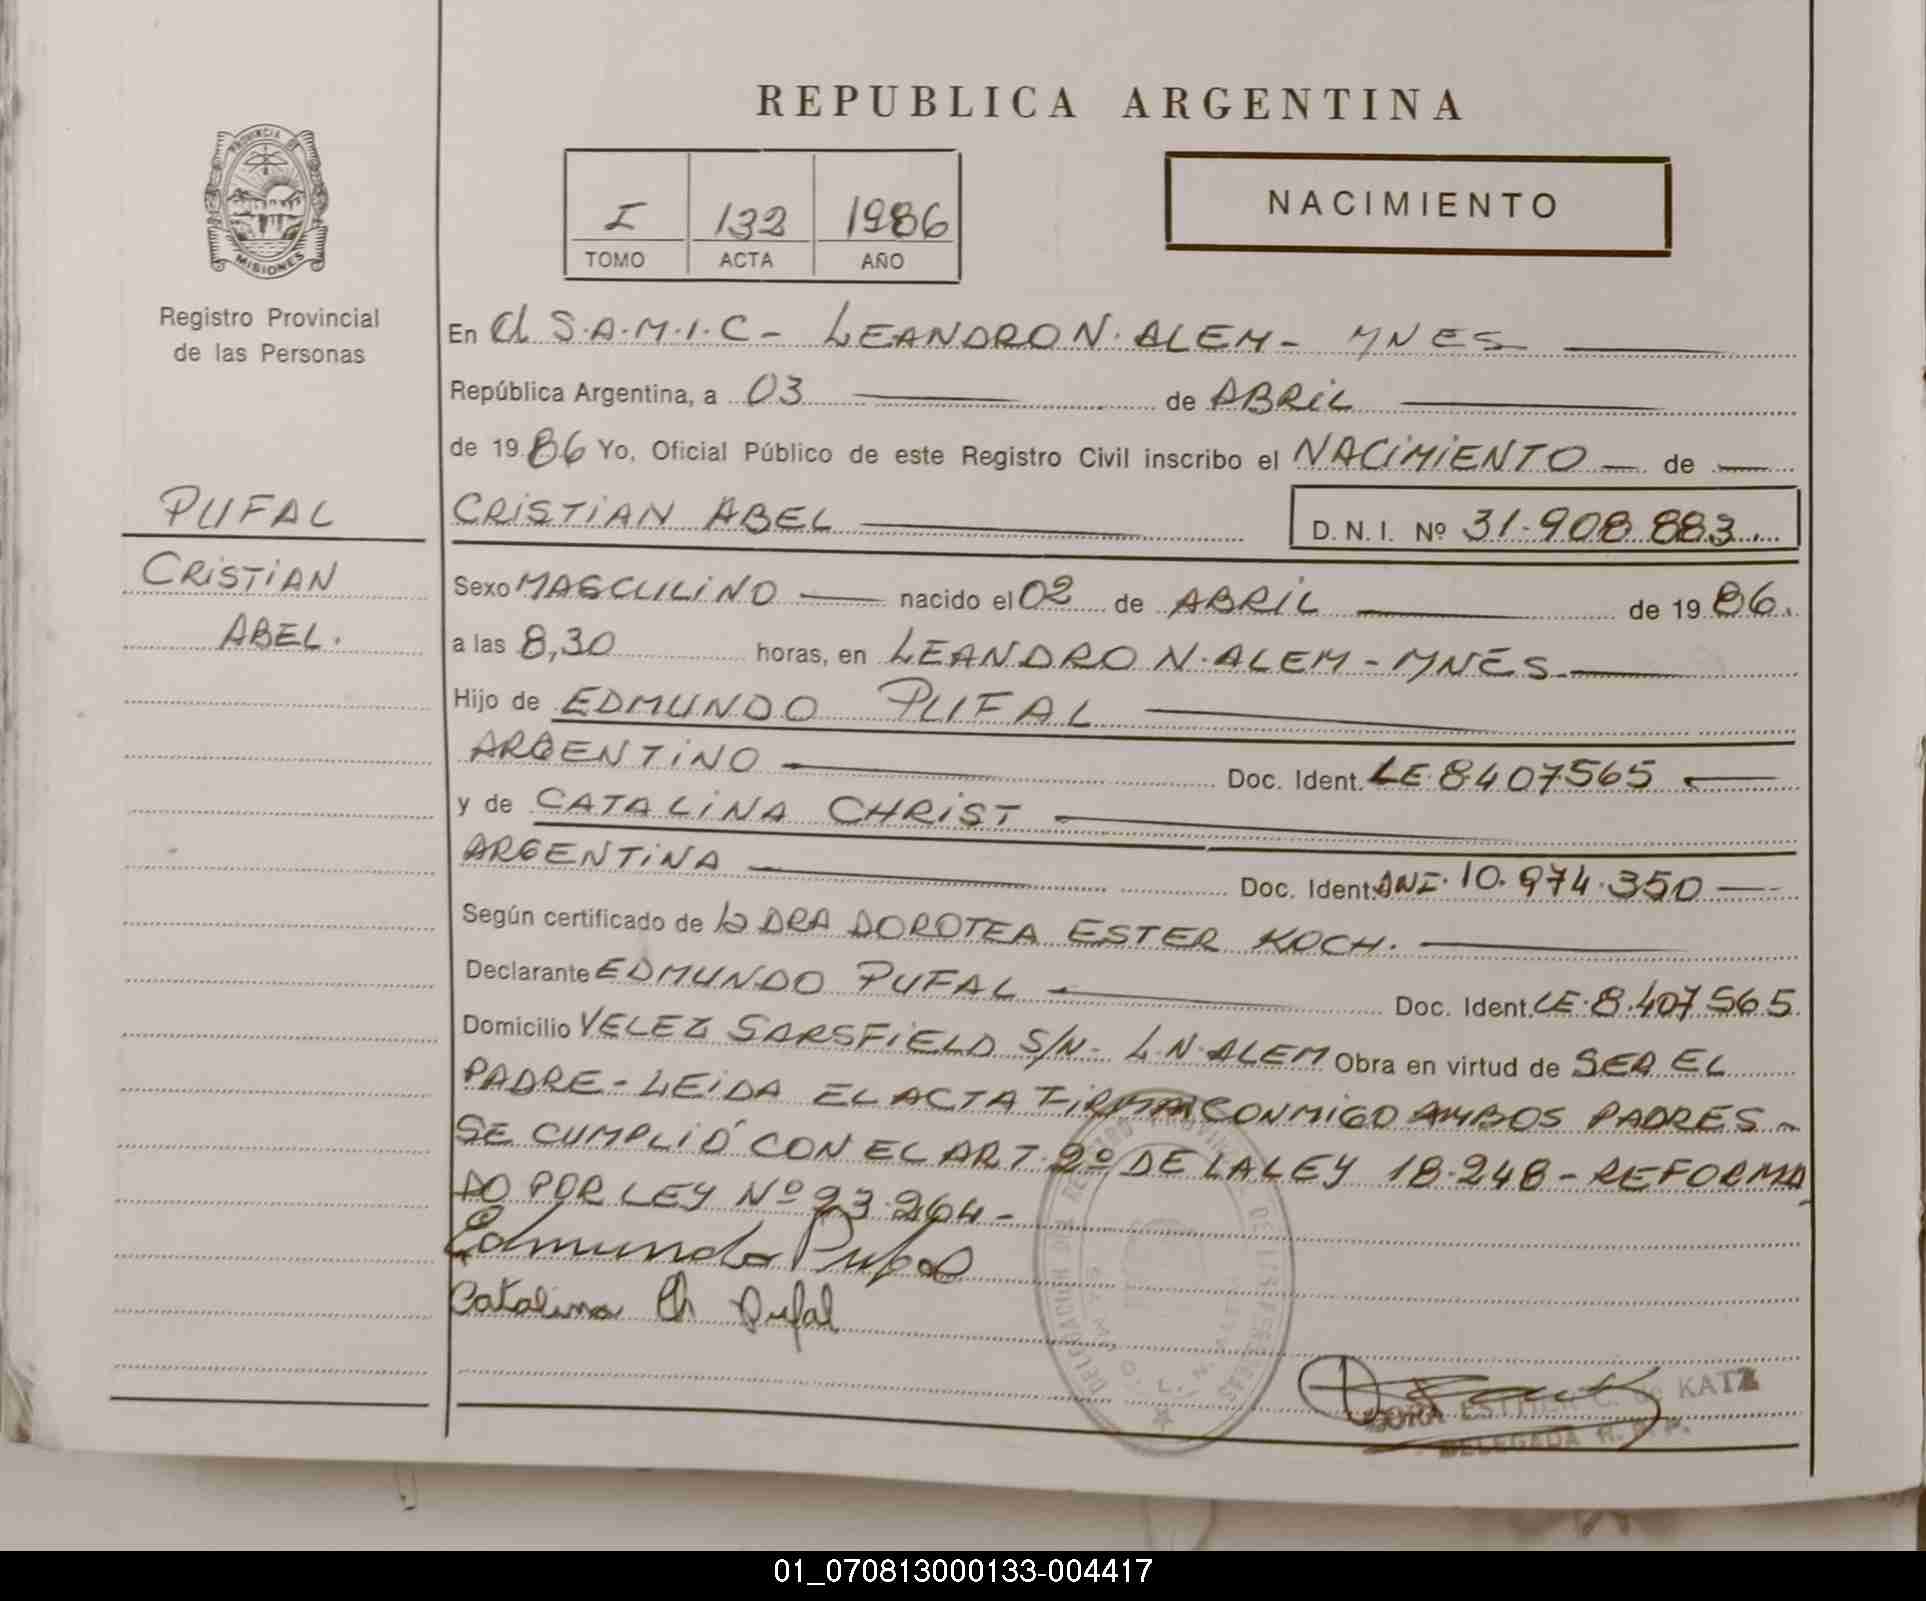 REPUBLICA ARGENTINA
PROVINCIA DE
MISIONES
Registro Provincial
de las Personas
I 132 1986
TOMO ACTA AÑO
NACIMIENTO
PUFAL
CRISTIAN
ABEL.
En el S.A.M.I.C - LEANDRO N. ALEM - MNES
República Argentina, a 03 de ABRIL
de 1986 Yo, Oficial Público de este Registro Civil inscribo el NACIMIENTO de
CRISTIAN ABEL D. N. I. Nº 31.908.883
Sexo MASCULINO nacido el 02 de ABRIL de 1986.
a las 8,30 horas, en LEANDRO N. ALEM - MNES
Hijo de EDMUNDO PUFAL
ARGENTINO Doc. Ident. LE. 8.407.565
y de CATALINA CHRIST
ARGENTINA Doc. Ident. DNI. 10.974.350
Según certificado de la DRA DOROTEA ESTER KOCH.
Declarante EDMUNDO PUFAL Doc. Ident. LE. 8.407.565
Domicilio VELEZ SARSFIELD S/N - L.N. ALEM Obra en virtud de SER EL
PADRE - LEIDA EL ACTA FIRMAN CONMIGO AMBOS PADRES -
SE CUMPLIÓ CON EL ART. 2º DE LA LEY 18.248 - REFORMA
DO POR LEY Nº 23.264 -
Edmundo Pufal
Catalina Ch Pufal
DORA ESTHER C. de KATZ
DELEGADA R. P. P.
01_070813000133-004417